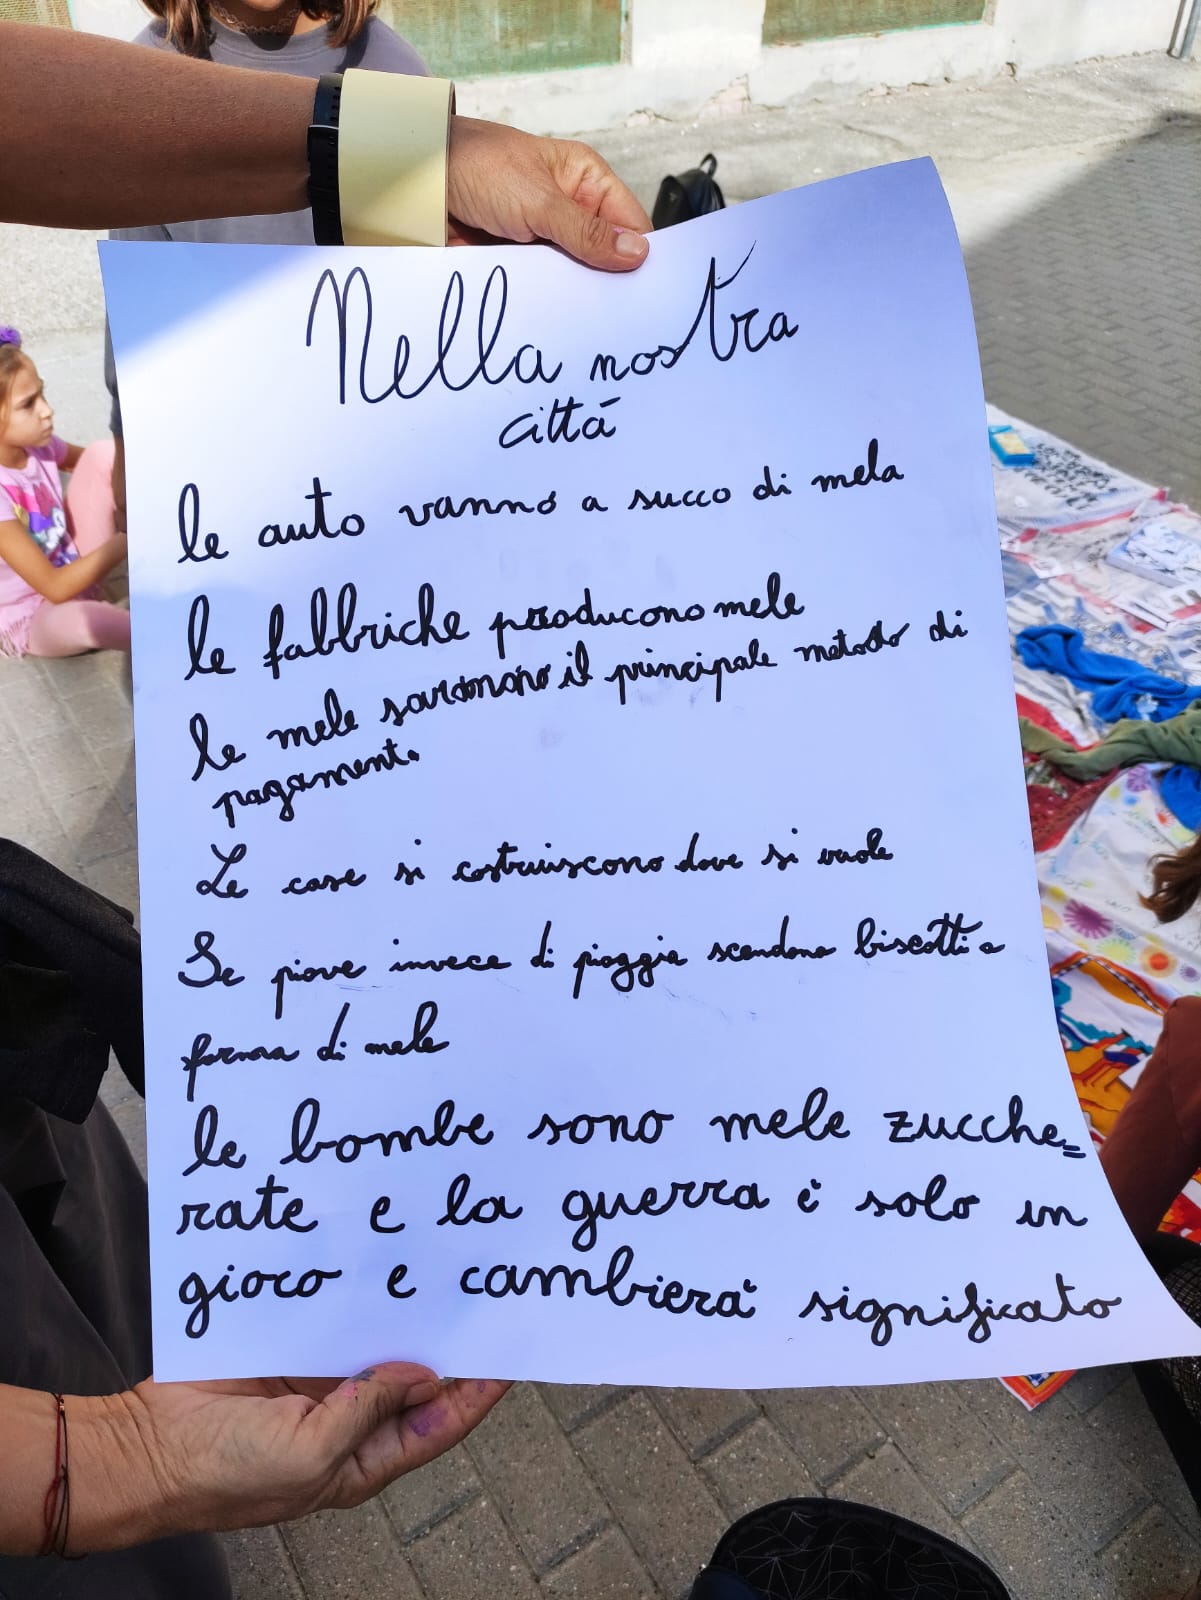 Nella nostra
città
le auto vanno a succo di mela
le fabbriche producono mele
le mele saranno il principale metodo di
pagamento
Le case si costruiscono dove si vuole
Se piove invece di pioggia scendono biscotti a
forma di mele
le bombe sono mele zucche=
rate e la guerra è solo un
gioco e cambierà significato